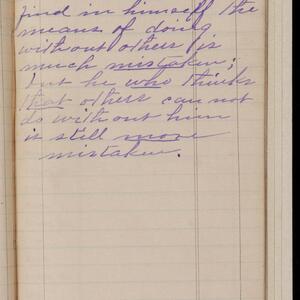 find in himself the
means of doing
without others is
much mistaken;
but he who thinks
that others can not
do without him
is still more
mistaken.